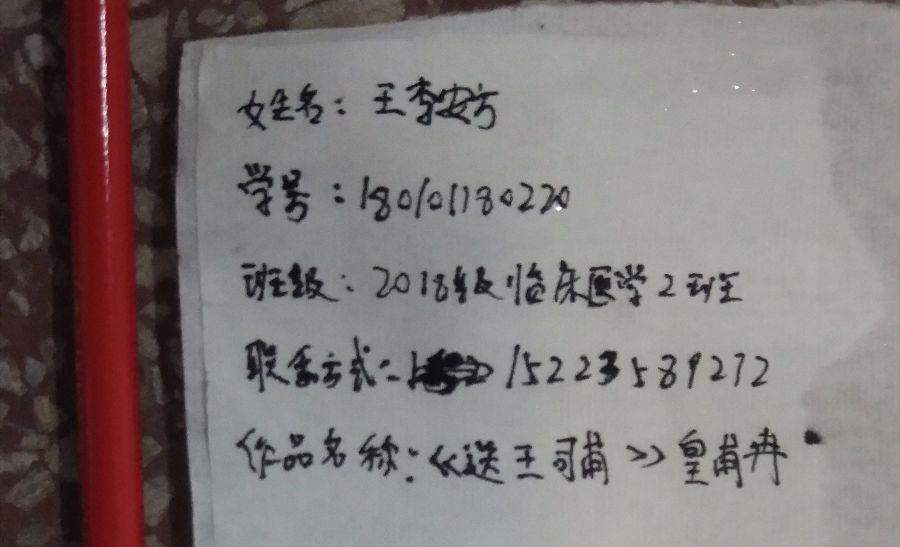 姓名：王李安方
学号：180101180220
班级：2018级临床医学2班
联系方式：15223589272
作品名称：《送王司直》皇甫冉